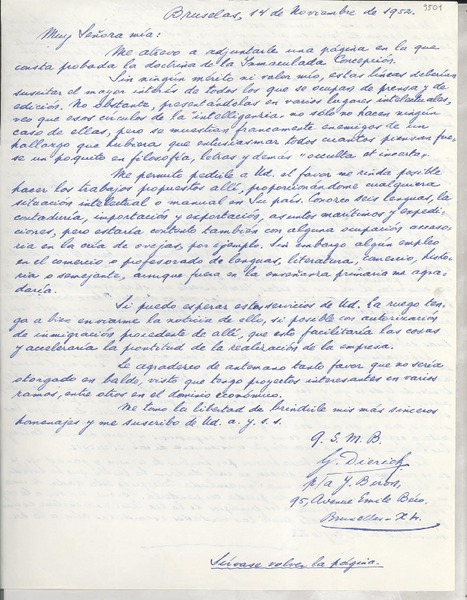 Bruselas, 14 de Noviembre de 1952.
9501
Muy Señora mía:
Me atrevo a adjuntarle una página en la que
consta probada la doctrina de la Inmaculada Concepción.
Sin ningún mérito ni valor mío, estas líneas deberían
suscitar el mayor interés de todos los que se ocupan de prensa y de
edición. No obstante, presentándolas en varios lugares intelectuales,
veo que esos círculos de la "intelligenzia" no sólo no hacen ningún
caso de ellas, pero se muestran francamente enemigos de un
hallazgo que hubiera que entusiasmar todos cuantos piensan fue-
se un poquito en filosofía, letras y demás "occulta et incerta".
Me permito pedirle a Ud. el favor me rinda posible
hacer los trabajos propuestos allí, proporcionándome cualquiera
situación intelectual o manual en Su país. Conozco seis lenguas, la
contaduría, importación y exportación, asuntos marítimos y expedi-
ciones, pero estaría contento también con alguna ocupación acceso-
ria en la cría de ovejas, por ejemplo. Sin embargo algún empleo
en el comercio o profesorado de lenguas, literatura, comercio, histo-
ria o semejante, aunque fuera en la enseñanza primaria me agra-
daría.
Si puedo esperar estos servicios de Ud. la ruego ten-
ga a bien enviarme la noticia de ello, si posible con autorización
de inmigración procedente de allí, que esto facilitaría las cosas
y aceleraría la prontitud de la realización de la empresa.
Le agradezco de antemano tanto favor que no sería
otorgado en balde, visto que tengo proyectos interesantes en varios
ramos, entre otros en el dominio económico.
Me tomo la libertad de brindirle mis más sinceros
homenajes y me suscribo de Ud. a. y. s. s.
q. S. M. B.
G. Dierick
p/a J. Biron,
95, Avenue Emile Béco.
Bruselles - XL.
Sírvase volver la página.